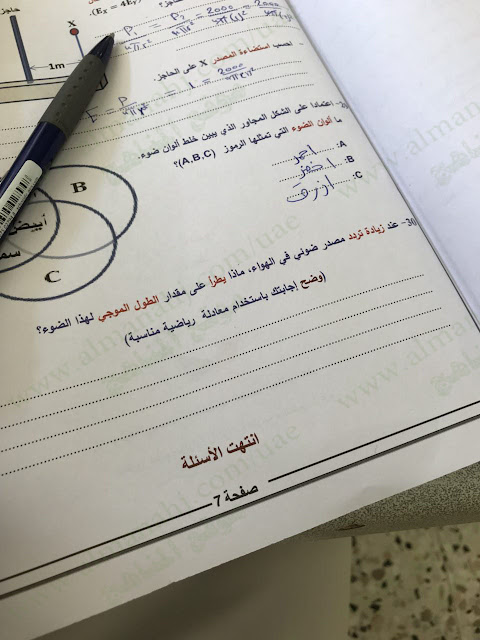 حاجز؟ (Eₓ = 4Eᵧ).
حاجز
X
1m
P₁/4πr² = P₂/4πr² = 2000/4π(1)² = 2000
احسب استضاءة المصدر X على الحاجز.
E = P/4πr² = 2000/4π(1)²
اعتمادا على الشكل المجاور الذي يبين خلط ألوان ضوء.
ما ألوان الضوء التي تمثلها الرموز (A,B,C)؟
A: احمر
B: اخضر
C: ازرق
B
أبيض
سما
C
30- عند زيادة تردد مصدر ضوئي في الهواء، ماذا يطرأ على مقدار الطول الموجي لهذا الضوء؟
(وضح إجابتك باستخدام معادلة رياضية مناسبة)
انتهت الأسئلة
صفحة 7
www.almanahj.com/uae
موقع المناهج